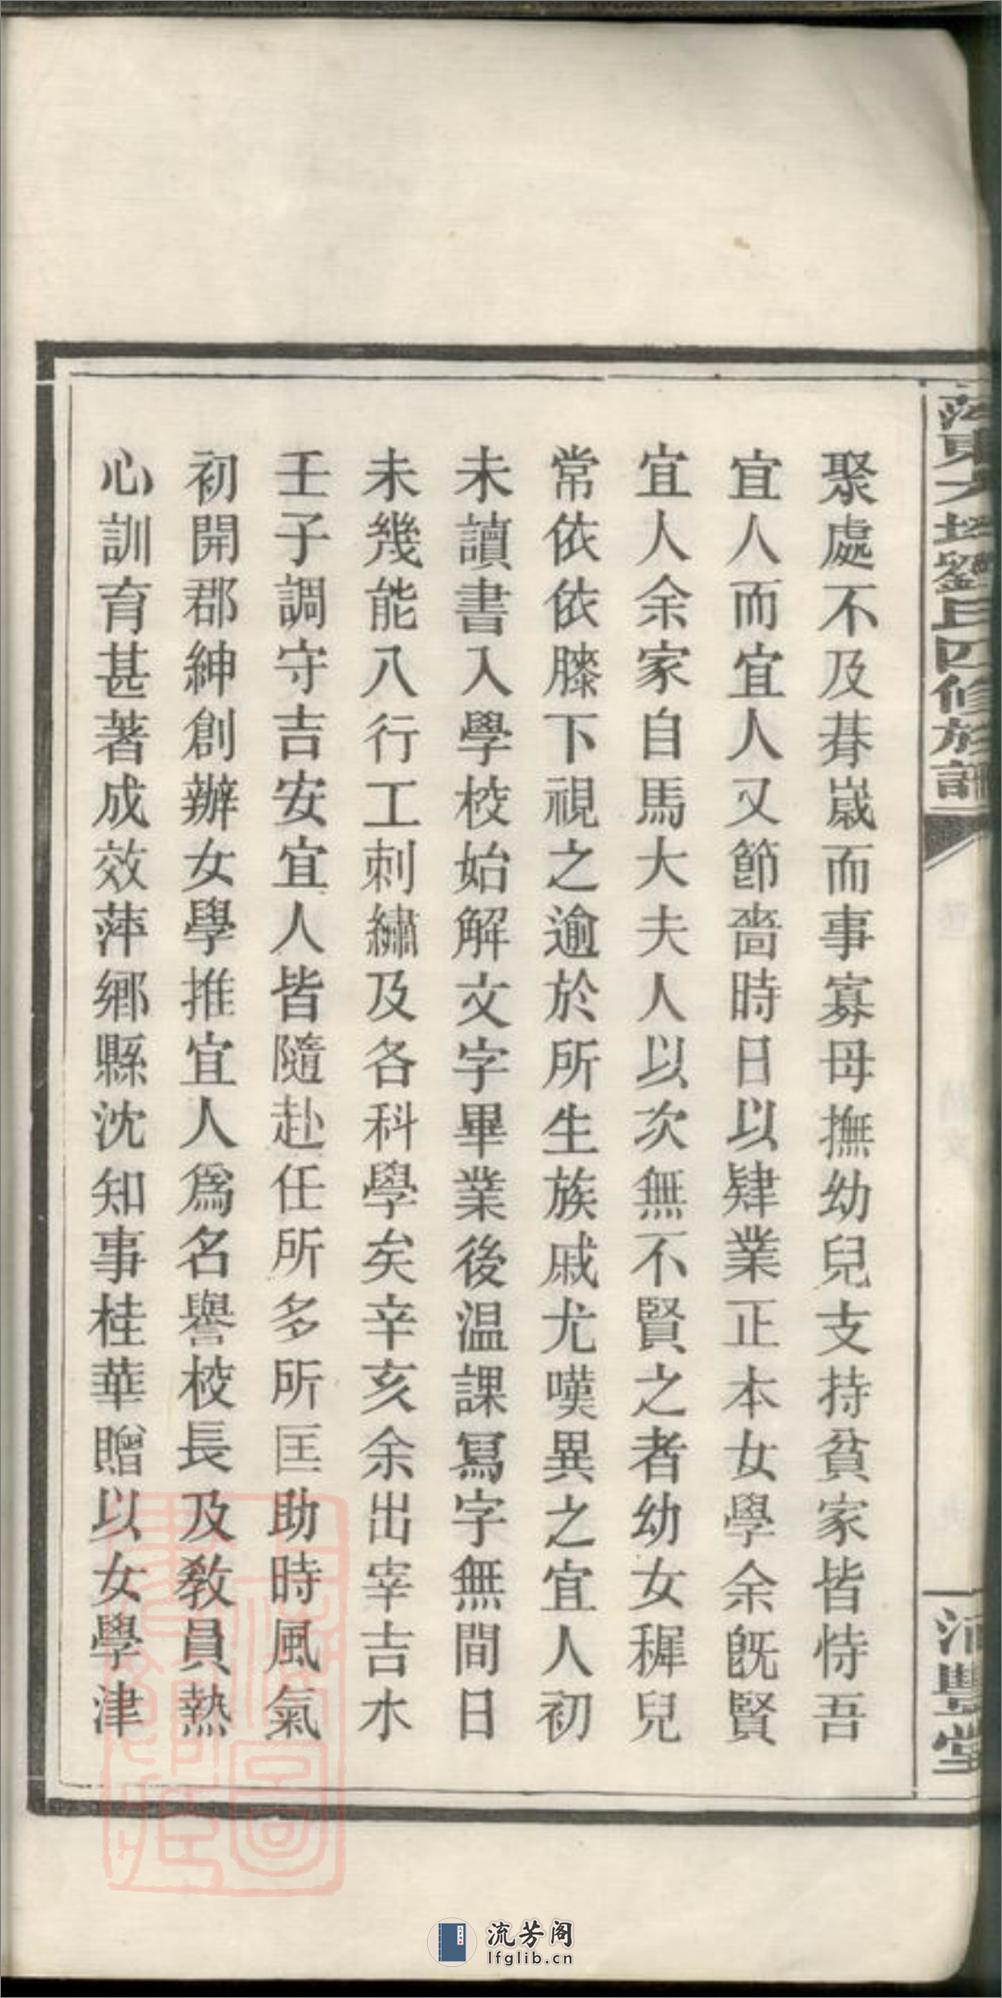 聚處不及朞嵗而事寡母撫幼兒支持貧家皆恃吾
宜人而宜人又節嗇時日以肄業正本女學余旣賢
宜人余家自馬大夫人以次無不賢之者幼女穉兒
常依依膝下視之逾於所生族戚尤嘆異之宜人初
未讀書入學校始解文字畢業後温課冩字無間日
未幾能八行工刺繡及各科學矣辛亥余出宰吉水
壬子調守吉安宜人皆隨赴任所多所匡助時風氣
初開郡紳創辦女學推宜人爲名譽校長及敎員熱
心訓育甚著成效萍鄉縣沈知事桂華贈以女學津
萍東大坵劉氏四修族譜
沛豐堂
上海圖書館藏
流芳阁
lfglib.cn